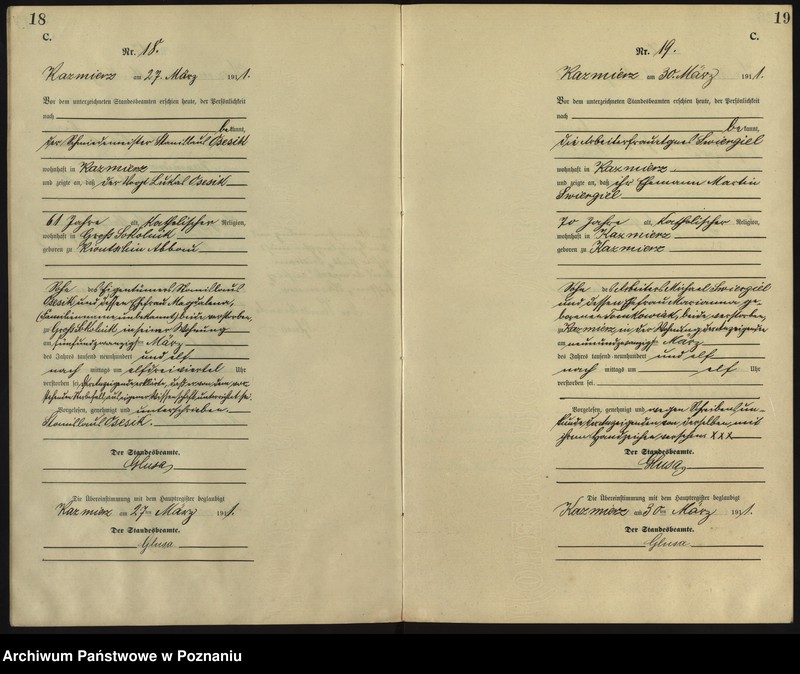 18
C.
Nr. 18.
Kazmierz am 27. März 1911.
Vor dem unterzeichneten Standesbeamten erschien heute, der Persönlichkeit
nach
bekannt,
der Schmiedemeister Stanislaus Osesik
wohnhaft in Kazmierz
und zeigte an, daß der Vogt Lukas Osesik
61 Jahre alt, katholischer Religion,
wohnhaft in Groß Sokolnik
geboren zu
Sohn des Eigentümers Stanislaus
Osesik und dessen Ehefrau Magdalena,
(Familienname unbekannt) beide verstorben,
zu Groß Sokolnik, in seiner Wohnung
am fünfundzwanzigsten März
des Jahres tausend neunhundert und elf
nach mittags um elfdreiviertel Uhr
verstorben sei. Der Anzeigende erklärte, daß er von dem vor-
stehenden Sterbefall aus eigener Wissenschaft unterrichtet sei.
Vorgelesen, genehmigt und unterschrieben.
Stanislaus Osesik.
Der Standesbeamte.
Glusa
Die Übereinstimmung mit dem Hauptregister beglaubigt
Kazmierz am 27ten März 1911.
Der Standesbeamte.
Glusa
19
C.
Nr. 19.
Kazmierz am 30. März 1911.
Vor dem unterzeichneten Standesbeamten erschien heute, der Persönlichkeit
nach
bekannt,
die Arbeiterfrau Agnes Swiergiel
wohnhaft in Kazmierz
und zeigte an, daß ihr Ehemann Martin
Swiergiel
70 Jahre alt, katholischer Religion,
wohnhaft in Kazmierz
geboren zu Kazmierz
Sohn des Arbeiters Michael Swiergiel
und dessen Ehefrau Marianna ge-
borenen beide verstorben,
zu Kazmierz in der Wohnung der Anzeigenden
am neunundzwanzigsten März
des Jahres tausend neunhundert und elf
nach mittags um elf Uhr
verstorben sei.
Vorgelesen, genehmigt und wegen Schreibensun-
kunde der Anzeigenden von derselben mit
ihrem Handzeichen versehen xxx
Der Standesbeamte.
Glusa
Die Übereinstimmung mit dem Hauptregister beglaubigt
Kazmierz am 30ten März 1911.
Der Standesbeamte.
Glusa
Archiwum Państwowe w Poznaniu